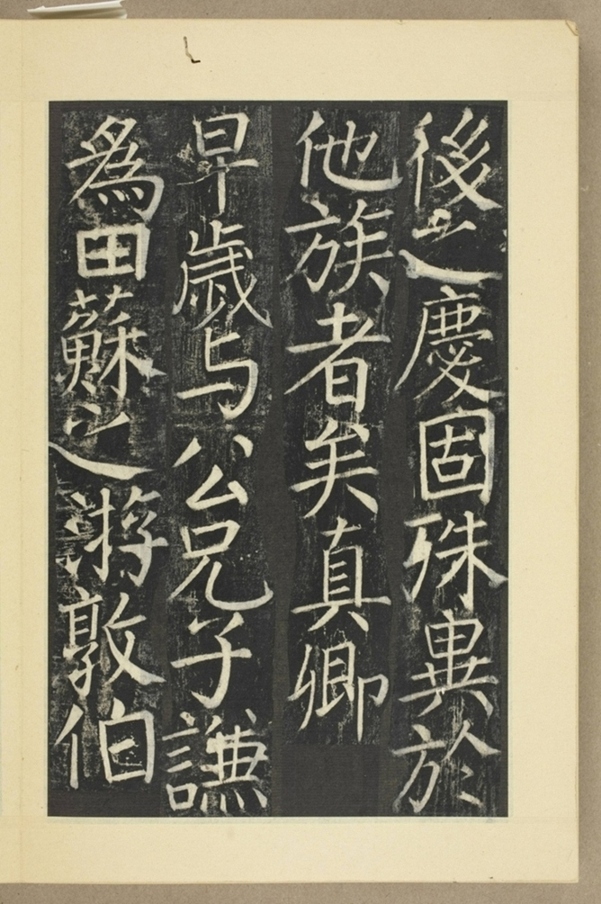 後之慶固殊異於
他族者矣真卿
早歲与公兄子謙
為田蘇之游敦伯